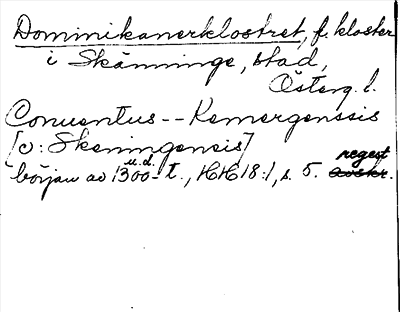 Dominikanerklostret, f. kloster
i Skänninge, stad,
Österg. l.
Conuentus -- Kemergensis
[ɔ: Skeningensis]
början av 1300-t. u.d., HH 18:1, s. 5. avskr. regest